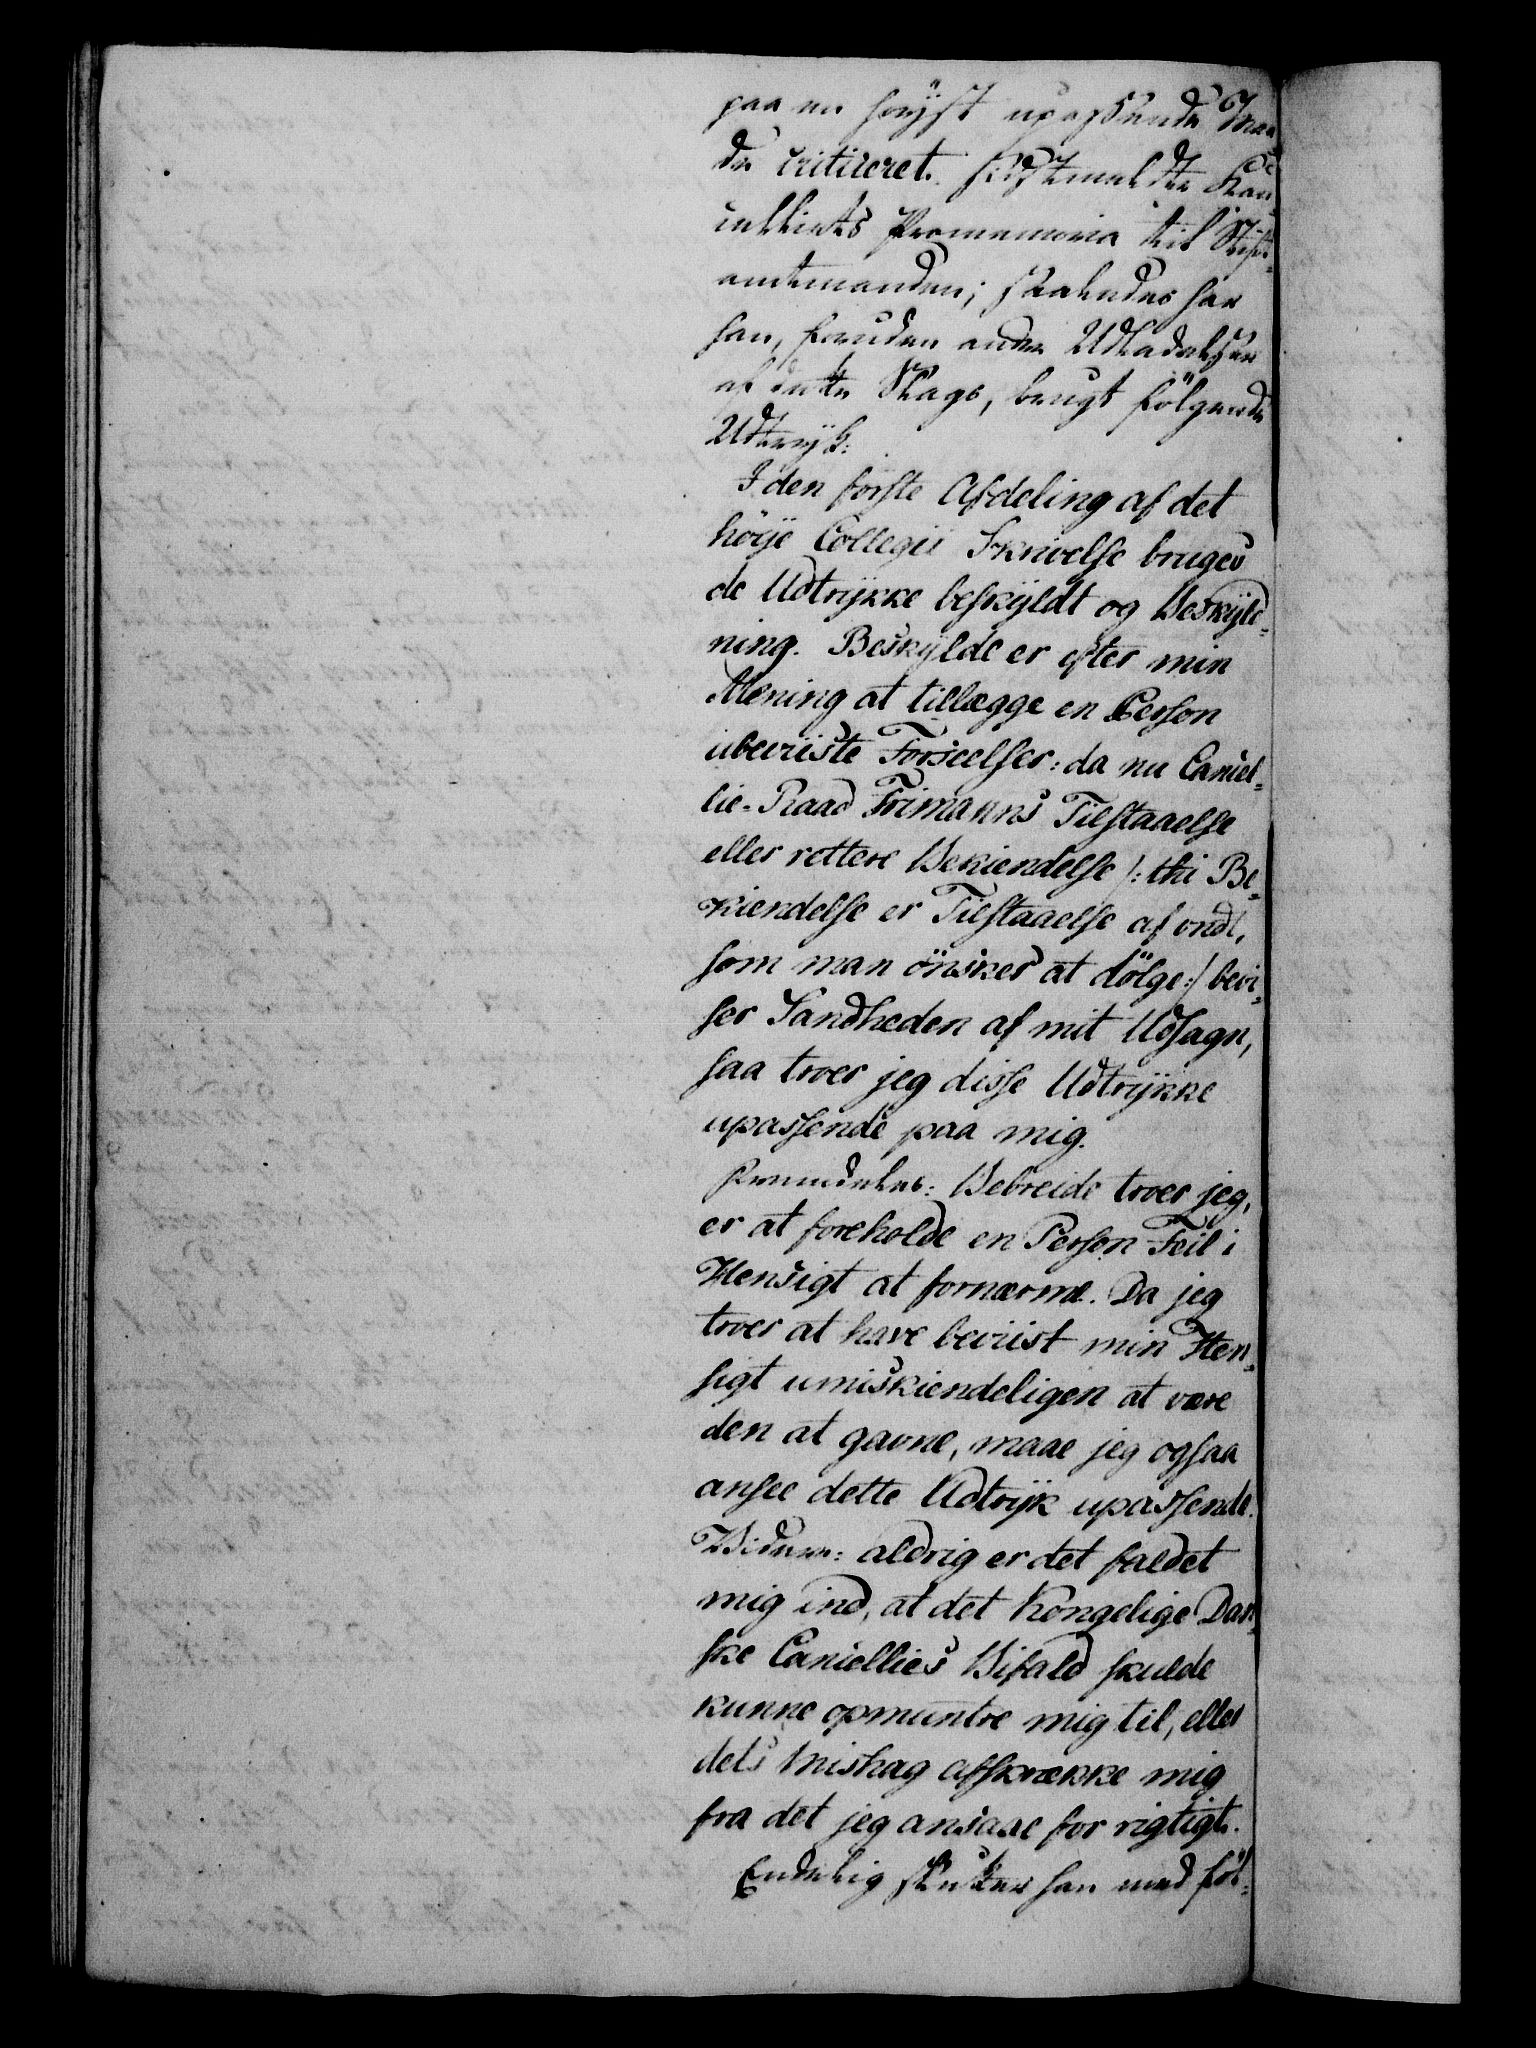 paa en høyst upassende Maa-
de critiseret sidstmeldte Can-
cellies Promemoria til Stift-
amtmanden; saaledes har
han, foruden andre Udladelser
af dette Slags, brugt følgende
Udtryk:
I den første Afdeling af det
höye Collegii Skrivelse bruges
de Udtrykke beskyldt og Beskyld-
ning. Beskylde er efter min
Mening at tillægge en Person
ubeviiste Forseelser: da nu Cancel-
lie-Raad Frimanns Tilstaaelse
eller rettere Bekiendelse /: thi Be-
kiendelse er Tilstaaelse af ondt,
som man önsker at dölge :/ bevi-
ser Sandheden af mit Udsagn,
saa troer jeg disse Udtrykke
upassende paa mig.
Fremdeles: Bebreide troer jeg,
er at foreholde en Person Feil i
Hensigt at fornærme. Da jeg
troer at have beviist min Hen-
sigt umiskiendeligen at være
den at gavne, maae jeg ogsaa
ansee dette Udtryk upassende.
Videre: aldrig er det faldet
mig ind, at det Kongelige Dan-
ske Cancellies Bifald skulde
kunne opmuntre mig til, eller
dets Mishag afskrække mig
fra det jeg ansaae for rigtigt.
Endelig slutter han med föl-